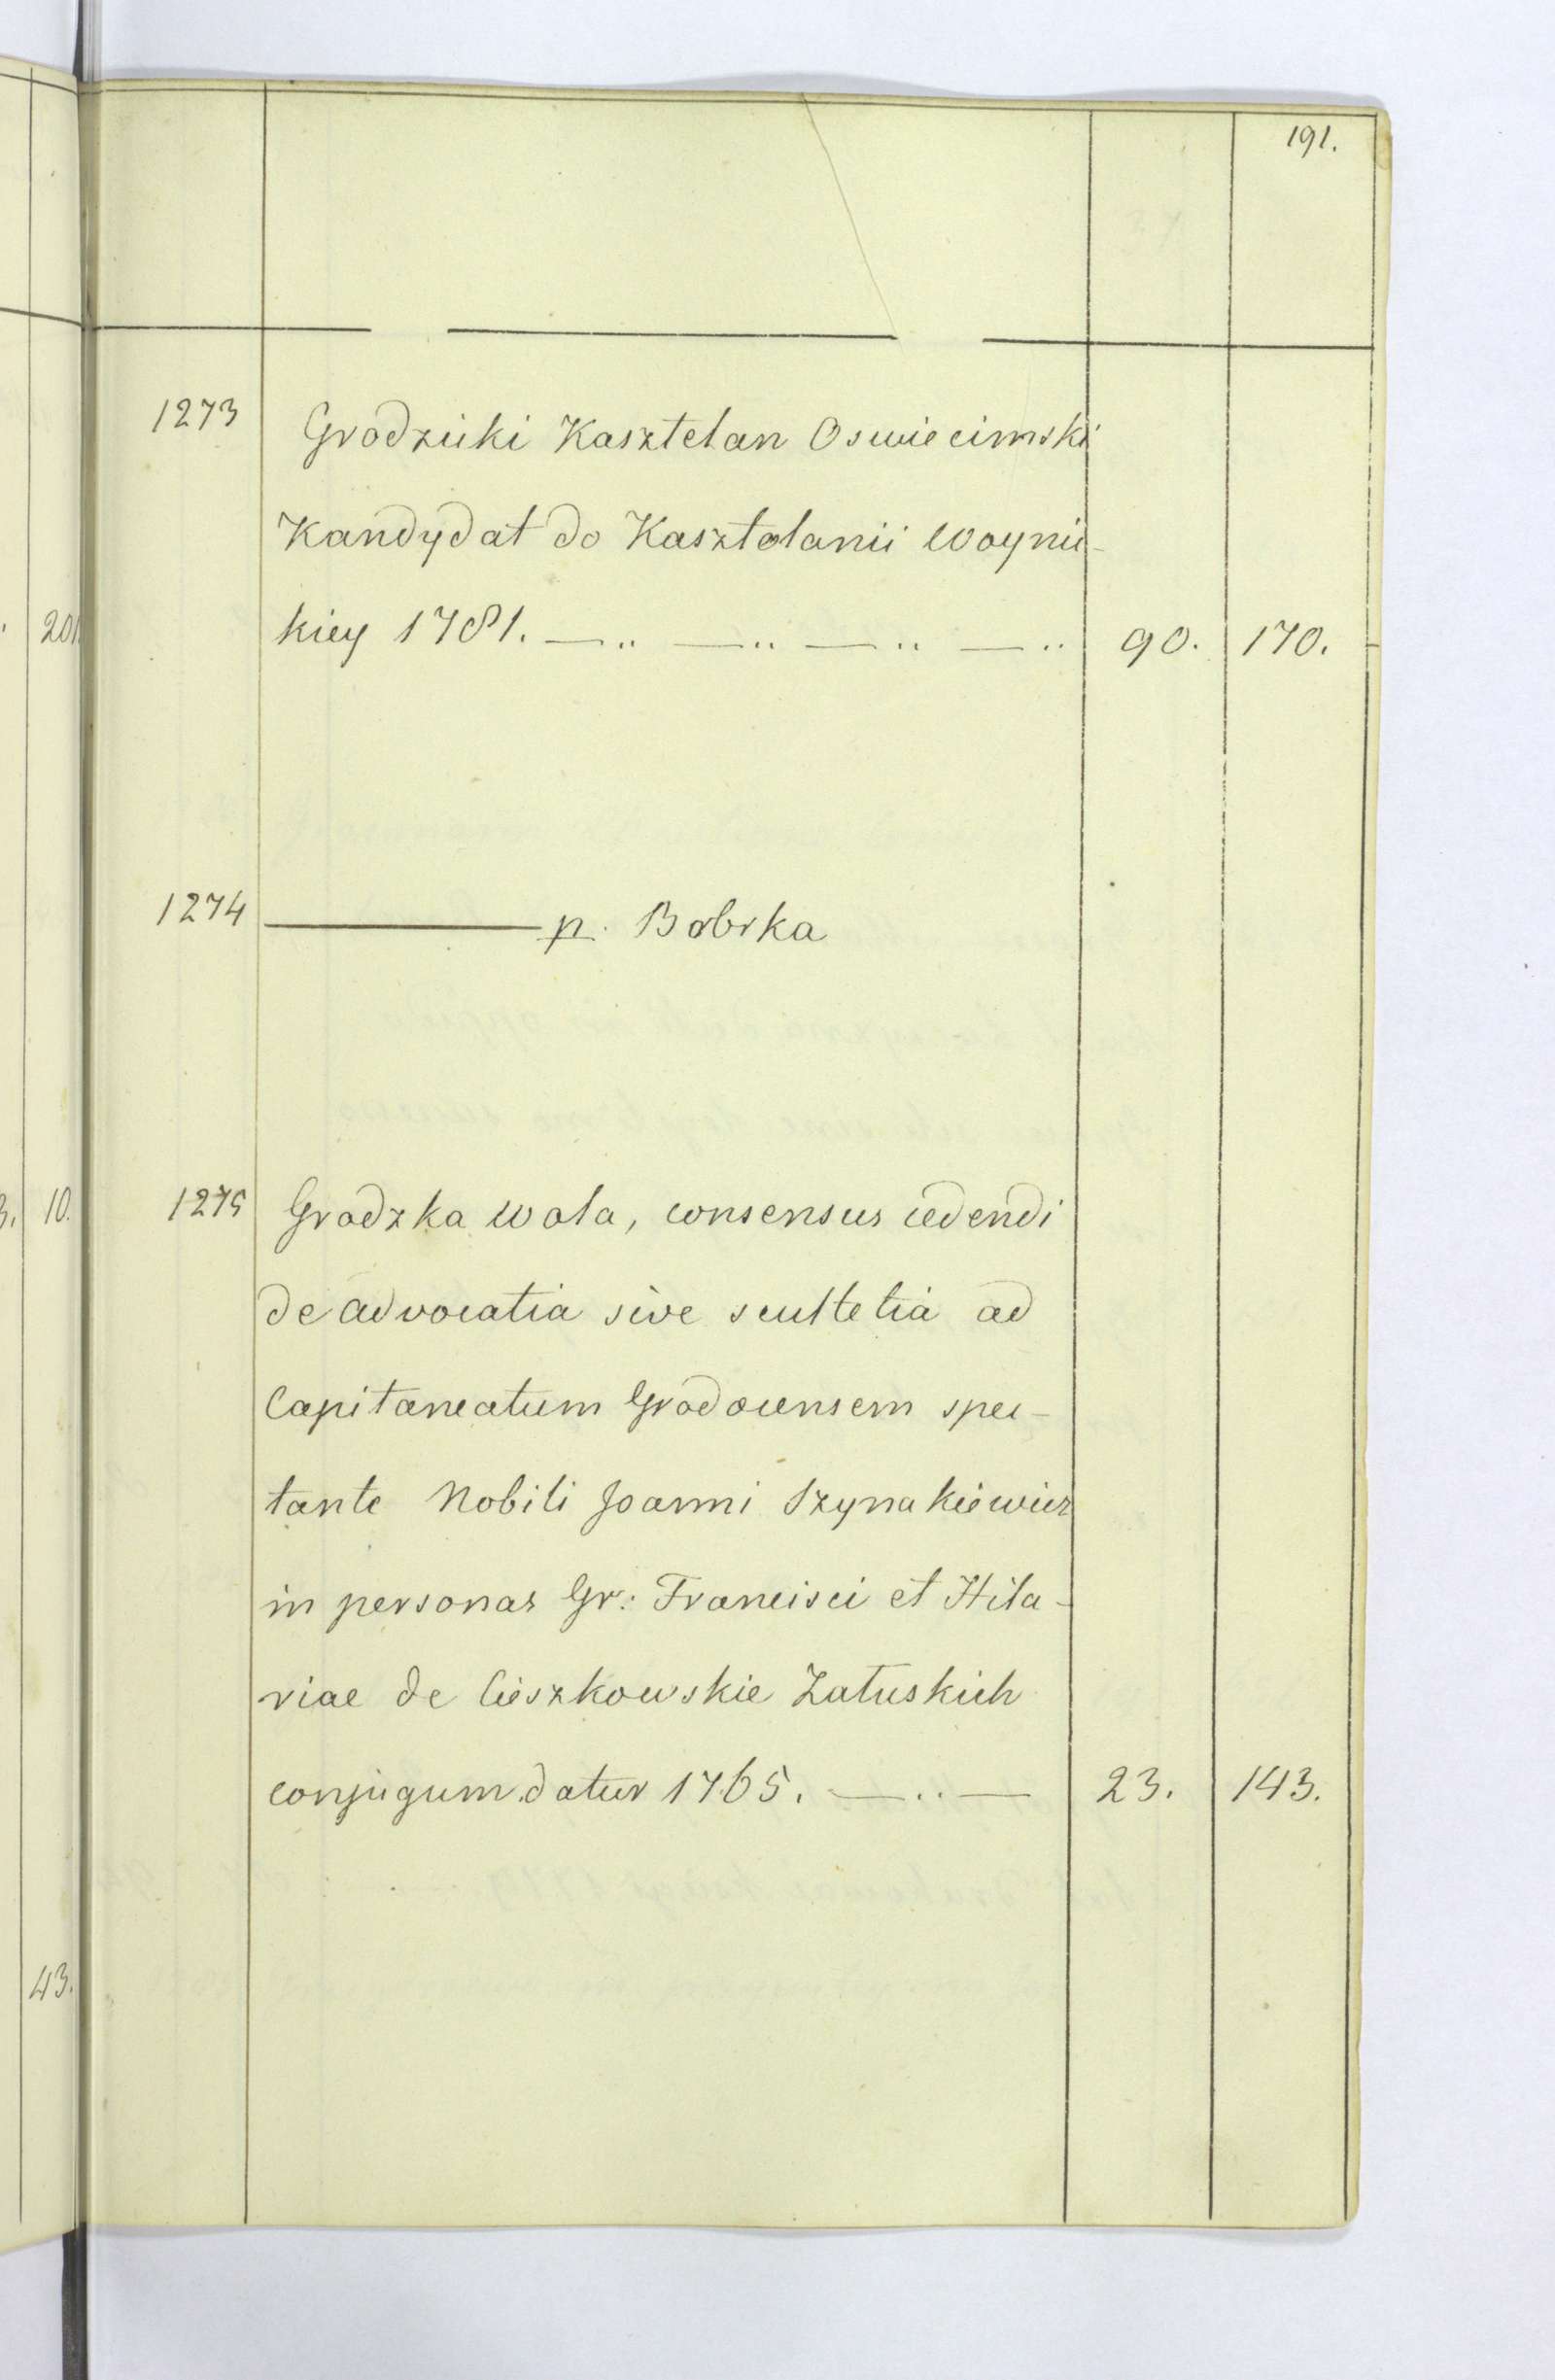 191.
1273 Grodzicki Kasztelan Oswiecimski
Kandydat do Kasztelanii Woynic-
kiey 1781. —..—..—..—.. 90. 170.
1274 ——— p. Bobrka
1275 Grodzka Wola, consensus cedendi
de advocatia sive scultetia ad
Capitaneatum Grodecensem spec-
tante Nobili Joanni Szynakiewicz
in personas Gr: Francisci et Hila-
riae de Cieszkowskie Załuskich
conjugum datur 1765. —..— 23. 143.
20
3. 10.
43.